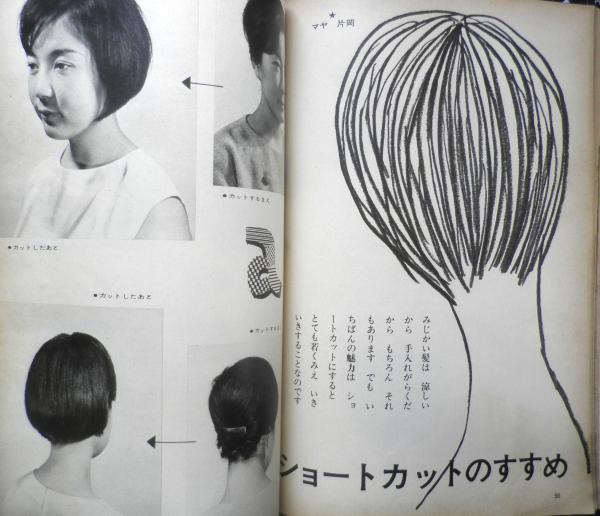 ★
マヤ 片岡
●カットするまえ
●カットしたあと
●カットしたあと
みじかい髪は 涼しい
から 手入れがらくだ
から もちろん それ
もあります でも い
ちばんの魅力は ショ
ートカットにすると
とても若くみえ いき
いきすることなのです
ショートカットのすすめ